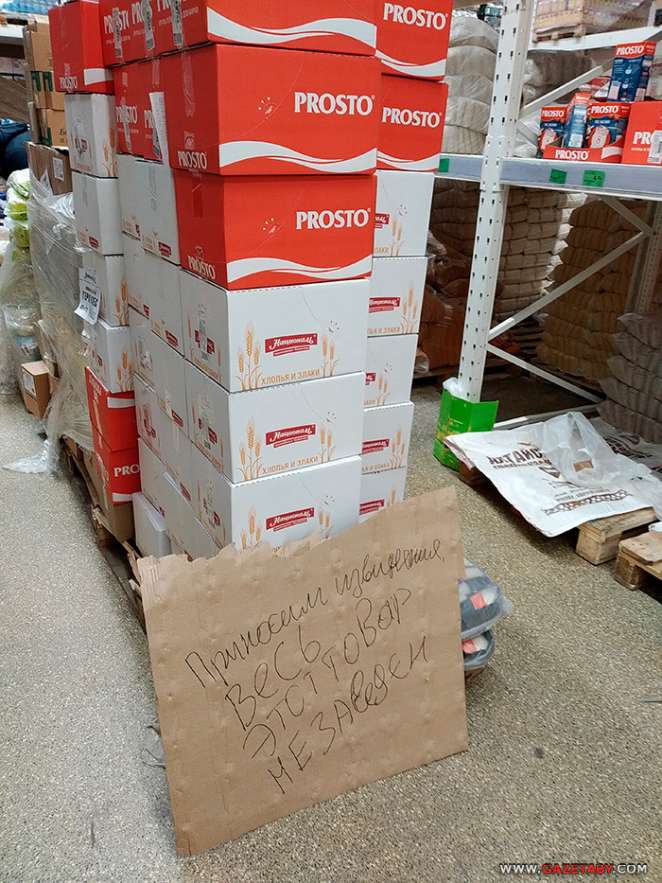 PROSTO
PROSTO
PROSTO
PROSTO
PROSTO
PROSTO
PROSTO
PROSTO
Националь
ХЛОПЬЯ И ЗЛАКИ
Националь
ХЛОПЬЯ И ЗЛАКИ
Националь
PRO
Приносим извинения,
ВЕСЬ
ЭТОТ ТОВАР
НЕ ЗАВЕДЕН
WWW.GAZETABY.COM